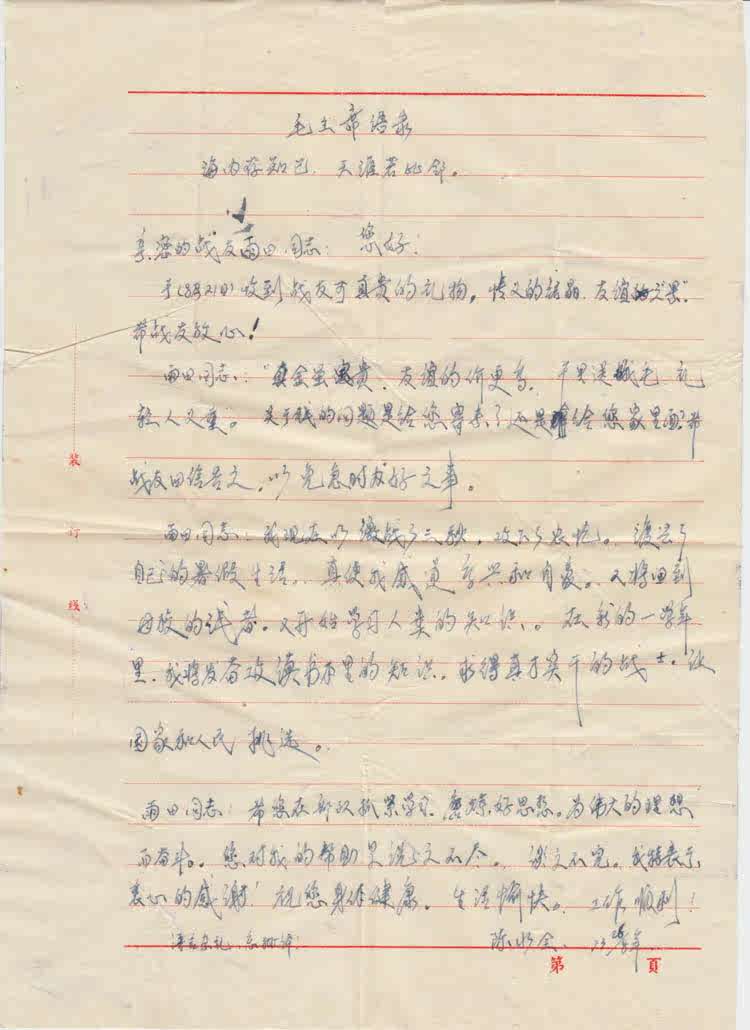 毛主席语录
海内存知己、天涯若比邻。
亲密的战友雨田同志：您好！
于(8月21日)收到战友可真贵的礼物，情义的结晶，友谊的
带战友放心！
雨田同志："真金虽贵，友谊的价更高，千里送鹅毛礼
轻人义重。关于钱的问题是给您寄来？还是给您家里？希
战友回信告之，以免急时办好之事。
雨田同志：我现在以激战了三秋，攻下了农忙。渡过了
自己的暑假生活，真使我感觉高兴和自豪。又将回到
母校的。又开始学习人类的知识、。在我的一学年
里，我将发奋攻读书本里的知识，求得真才实干的战士。让
国家和人民挑选。
雨田同志：希您在部队抓紧学习，磨炼好思想。为伟大的理想
而奋斗。您对我的帮助是说之不尽，谈之不完。我特表示
衷心的感谢！祝您身体健康。生活愉快。工作顺利！
陈
装
订
线
第 頁